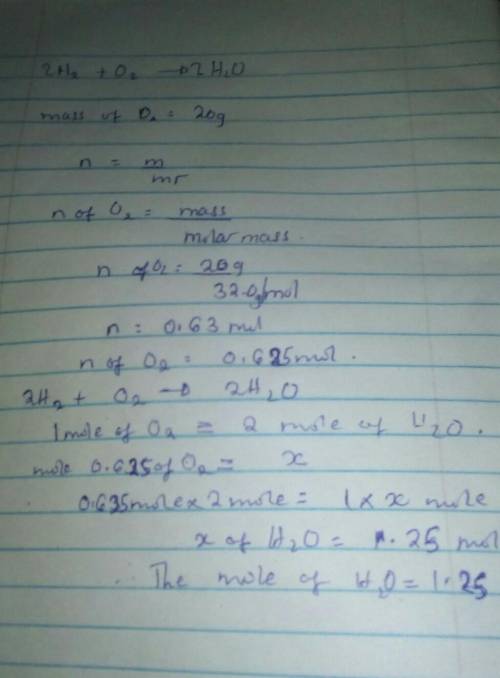 2H₂ + O₂ → 2H₂O
mass of O₂ = 20g
n = m/mr
n of O₂ = mass/molar mass.
n of O₂ = 20g/32.0g/mol
n = 0.63 mol
n of O₂ = 0.625 mol.
2H₂ + O₂ → 2H₂O
1 mole of O₂ = 2 mole of H₂O.
mole 0.625 of O₂ = x
0.625 mole x 2 mole = 1 x x mole
x of H₂O = 1.25 mol
∴ The mole of H₂O = 1.25